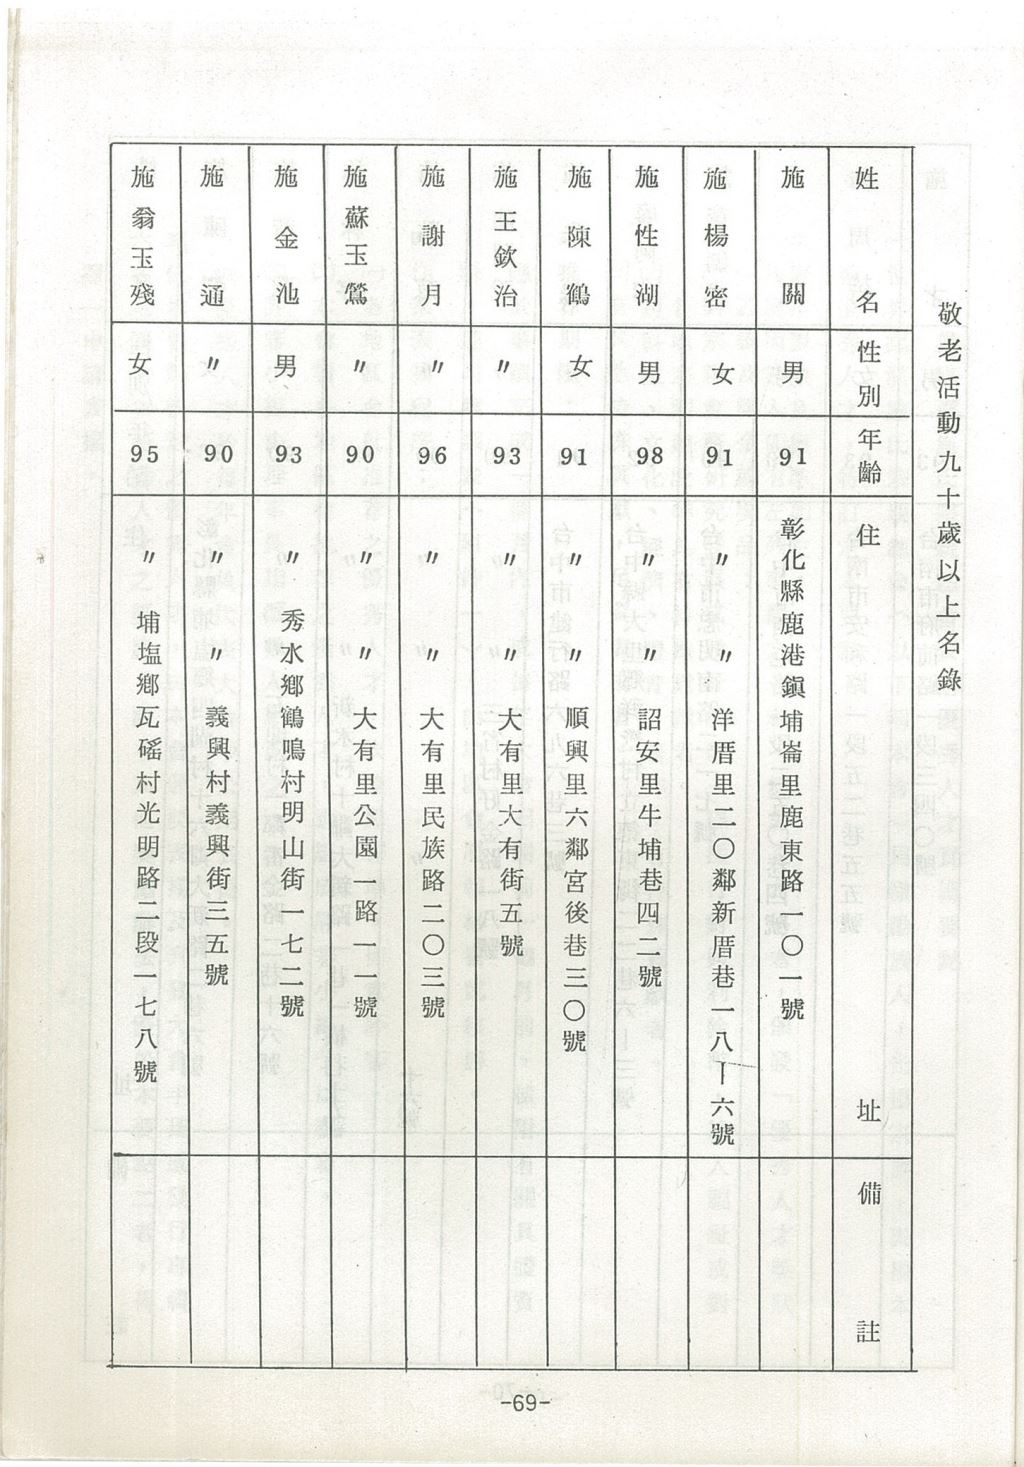 敬老活動九十歲以上名錄
姓名 性別 年齡 住址 備註
施關 男 91 彰化縣鹿港鎭埔崙里鹿東路一〇一號
施楊密 女 91 〃 〃 洋厝里二〇鄰新厝巷一八－六號
施性湖 男 98 〃 〃 詔安里牛埔巷四二號
施陳鶴 女 91 〃 〃 順興里六鄰宮後巷三〇號
施王欽治 〃 93 〃 〃 大有里大有街五號
施謝月 〃 96 〃 〃 大有里民族路二〇三號
施蘇玉鶯 〃 90 〃 〃 大有里公園一路一一號
施金池 男 93 〃 秀水鄉鶴鳴村明山街一七二號
施通 〃 90 〃 〃 義興村義興街三五號
施翁玉殘 女 95 〃 埔塩鄉瓦磘村光明路二段一七八號
-69-